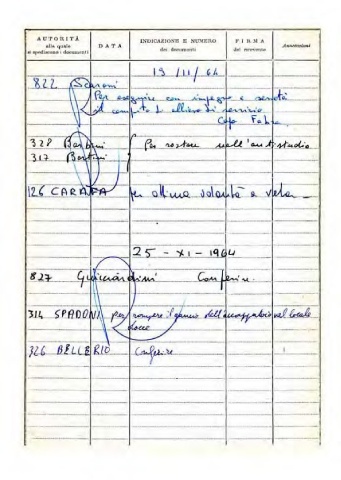 AUTORITÀ
alla quale
si spediscono i documenti
DATA
INDICAZIONE E NUMERO
dei documenti
FIRMA
del ricevente
Annotazioni
19/11/64
822 Scaroni
Per eseguire con impegno e serietà
il compito di allievo di servizio
Capo Fabra.
328 Barbini
317 Bertini
Per sostare nell'antistudio
126 CARAFA per ottima volontà a vela -
25 - XI - 1964
827 Guicciardini Conferire.
314 SPADONI per rompere il gancio dell'accappatoio nel locale
docce
326 BELLERIO Conferire